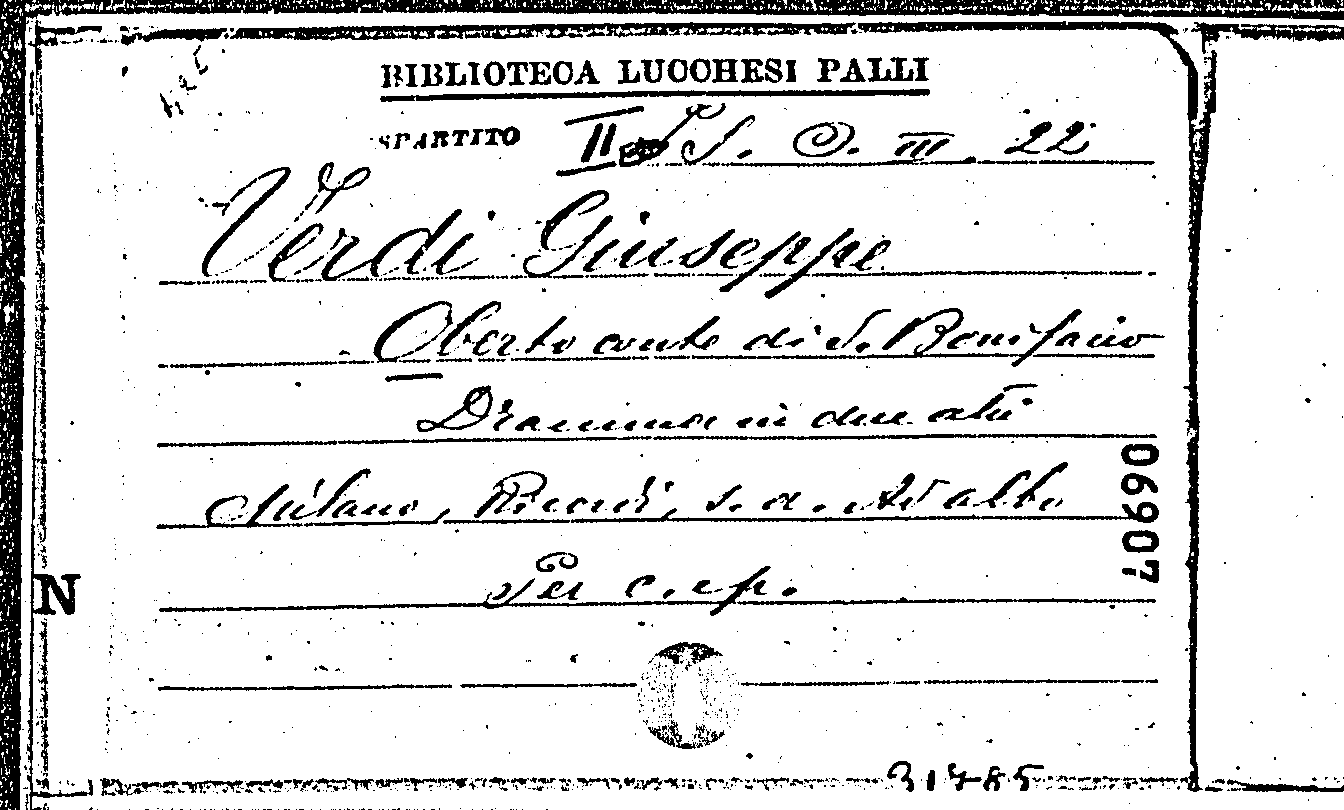 BIBLIOTECA LUCCHESI PALLI
SPARTITO II S. O. III. 22
Verdi Giuseppe
Oberto conte di S. Bonifacio
Dramma in due atti
Milano, Ricordi, s. a. alb.
Per c. e p.
70690
N
31785